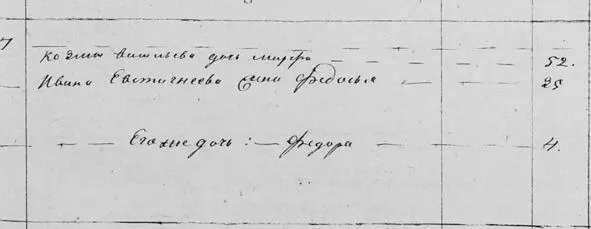 7
козмы васильева дочь марфа 52.
Ивана Евстигнеева Федосья 25
Его же дочь: — Федора 4.